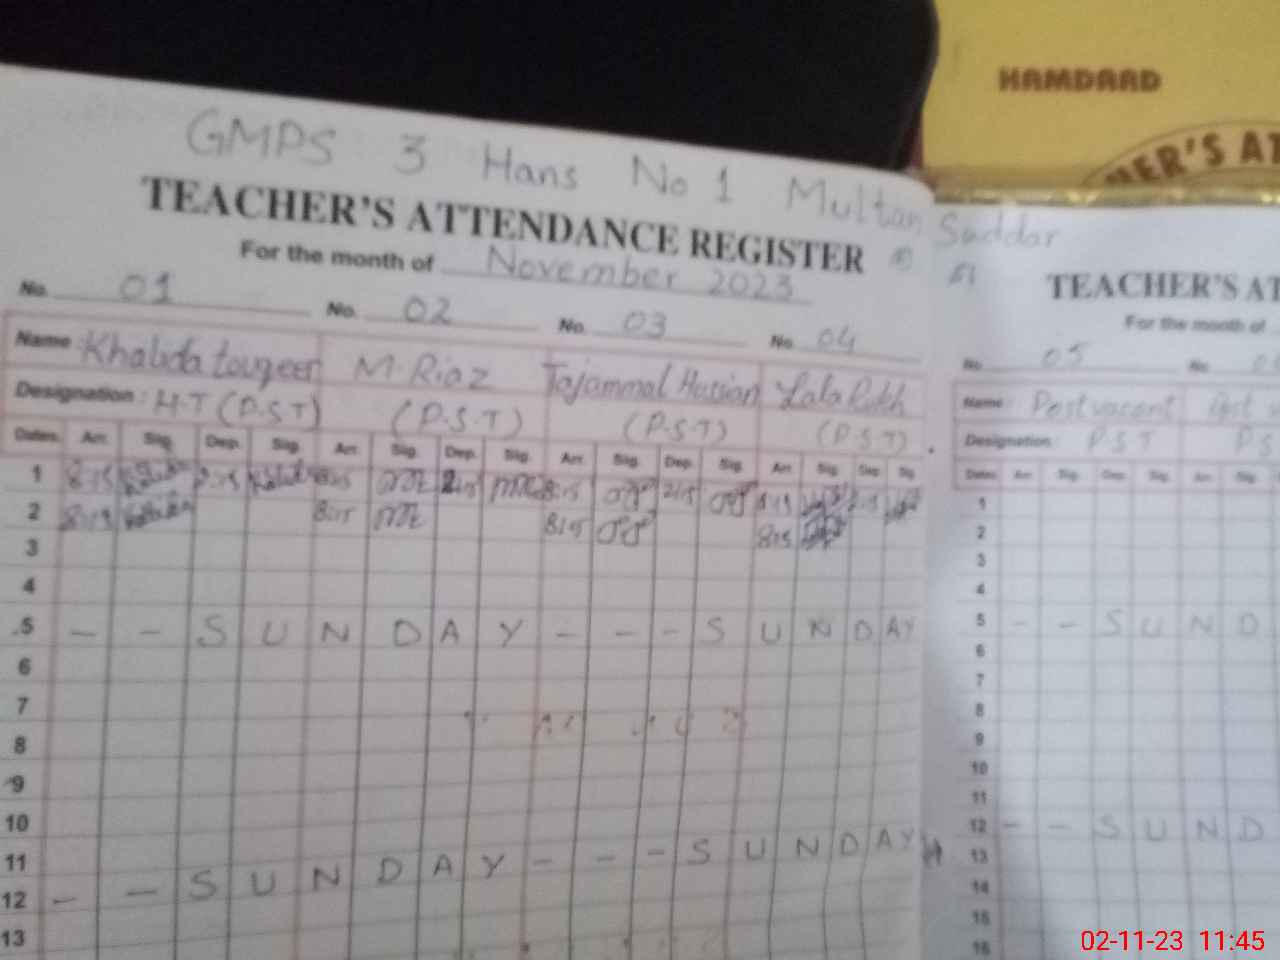 HAMDARD
HER'S AT
GMPS 3 Hans No 1 Multan Saddar
TEACHER'S ATTENDANCE REGISTER
For the month of November 2023
No. 01 No. 02 No. 03 No. 04
Name Khalida touqeer M.Riaz Tajammal Hussian Lala Rukh
Designation: H.T (P.S.T) (P.S.T) (P.S.T) (P.S.T)
Dates Arr. Sig. Dep. Sig. Arr. Sig. Dep. Sig. Arr. Sig. Dep. Sig. Arr. Sig. Dep. Sig.
1 8:15 2:15 8:15 2:15 8:15 2:15 8:15 2:15
2 8:15 8:15 8:15 8:15
3
4
5 - - S U N D A Y - - - S U N D A Y
6
7
8
9
10
11
12 - - S U N D A Y - - - S U N D A Y
13
TEACHER'S AT
For the month of
No. 05 No.
Name: Post vacant
Designation: P.S.T P.S
Dates Arr. Sig. Dep. Sig. Arr. Sig.
1
2
3
4
5 - - S U N D
6
7
8
9
10
11
12 - - S U N D
13
14
15
16
02-11-23 11:45